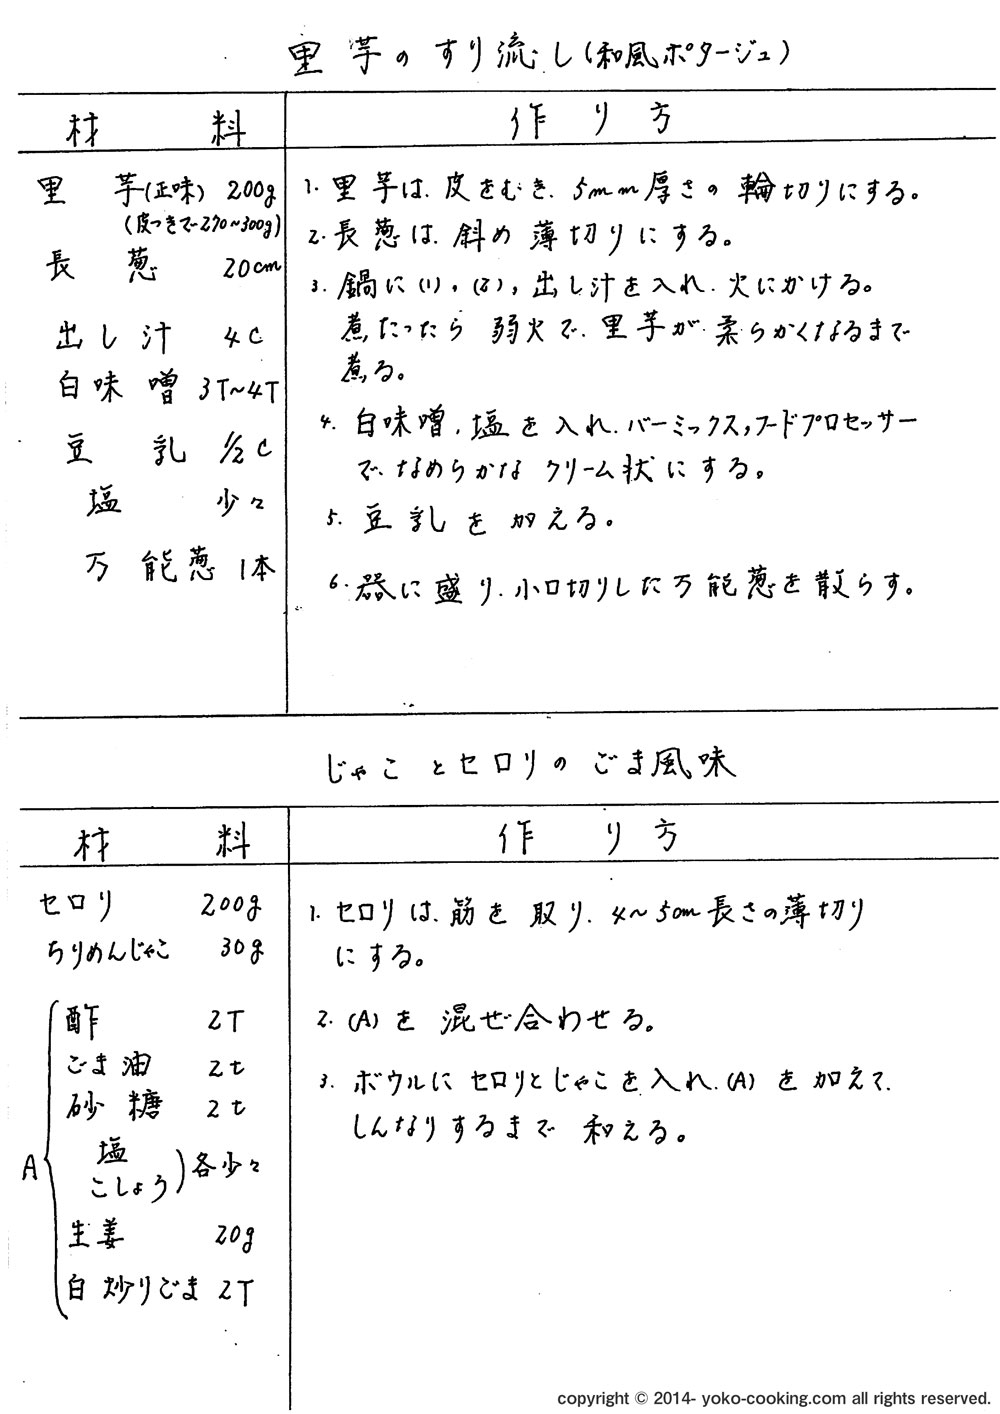 里芋のすり流し(和風ポタージュ)
材料
作り方
里芋(正味) 200g
(皮つきで270~300g)
長葱 20cm
出し汁 4C
白味噌 3T~4T
豆乳 1/2C
塩 少々
万能葱 1本
1. 里芋は、皮をむき、5mm厚さの輪切りにする。
2. 長葱は、斜め薄切りにする。
3. 鍋に(1)、(2)、出し汁を入れ、火にかける。
煮たったら弱火で、里芋が柔らかくなるまで
煮る。
4. 白味噌、塩を入れ、バーミックス,フードプロセッサー
で、なめらかなクリーム状にする。
5. 豆乳を加える。
6. 器に盛り、小口切りした万能葱を散らす。
じゃことセロリのごま風味
材料
作り方
セロリ 200g
ちりめんじゃこ 30g
A
酢 2T
ごま油 2t
砂糖 2t
塩
こしょう)各少々
生姜 20g
白炒りごま 2T
1. セロリは、筋を取り、4~5cm長さの薄切り
にする。
2. (A)を混ぜ合わせる。
3. ボウルにセロリとじゃこを入れ、(A)を加えて、
しんなりするまで和える。
copyright © 2014- yoko-cooking.com all rights reserved.